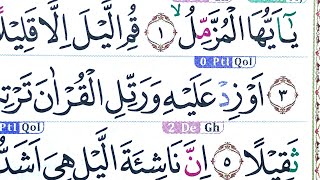 يٰۤاَيُّهَا الْمُزَّمِّلُۙ ۝١ قُمِ الَّيْلَ اِلَّا قَلِيْلًا
0 Ptl Qol
۝٣ اَوْ زِدْ عَلَيْهِ وَرَتِّلِ الْقُرْاٰنَ
Ptl Qol 2 De Gh
ثَقِيْلًا ۝٥ اِنَّ نَاشِئَةَ الَّيْلِ هِيَ اَشَدُّ